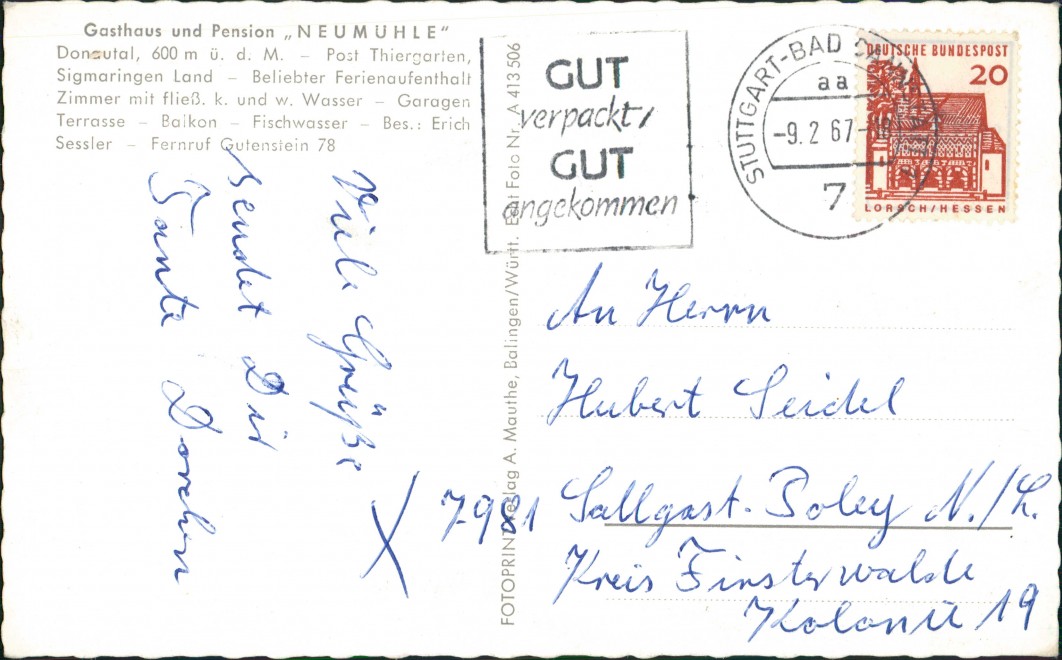 Gasthaus und Pension „NEUMÜHLE"
Donautal, 600 m ü. d. M. – Post Thiergarten,
Sigmaringen Land – Beliebter Ferienaufenthalt
Zimmer mit fließ. k. und w. Wasser – Garagen
Terrasse – Balkon – Fischwasser – Bes.: Erich
Sessler – Fernruf Gutenstein 78
Viele Grüße
sendet Dir
Tante Dorchen
FOTOPRINT Verlag A. Mauthe, Balingen/Württ. Echt Foto Nr. A 413 506
GUT
verpackt/
GUT
angekommen
STUTTGART-BAD
aa
-9. 2 67-
7
DEUTSCHE BUNDESPOST
20
LORSCH/HESSEN
An Herrn
Hubert Seidel
7981 Sallgast-Poley N./L.
Kreis Finsterwalde
Kolonie 19